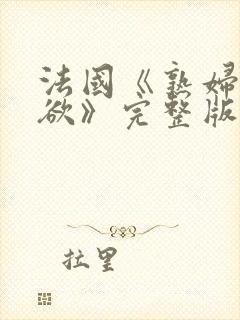 法國《熟婦
欲》完整版
拉里